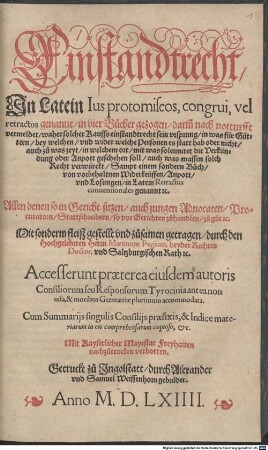 Einstandtrecht/
In Latein Ius protomiseos, congrui, vel
retractus genannt, in vier Bücher gezogen/ darin nach notturfft
vermeldet/ waher solcher Kauffs einstandtrecht sein ursprung/ in was für Güt-
tern/ bey welchen/ und wider welche Personen es statt hab oder nicht/
auch zu was zeyt/ in welchem ort/ mit was solennitet die Verkün-
dung oder Anpott geschehen soll/ auch was massen solch
Recht verwürckt/ Sampt einem sondern Büch/
von vorbehaltnen Widerkeüffen/ Anpott/
und Losungen/ in Latein Retractus
conventionales genannt ꝛc.
Allen denen so in Gericht sitzen/ auch jungen Advocaten/ Pro-
curatorn/ Stattschreibern/ so vor Gerichten zühandlen/ zu güt ꝛc.
Mit sonderm fleiß gestellt und zusamen getragen/ durch den
Hochgelehrten Herrn Martinum Pegium, beyder Rechten
Doctor/ und Saltzburgischen Rath ꝛc.
Accesserunt præterea eiusdem autoris
Consiliorum seu Responsorum Tyrocinia antea non
visa, & moribus Germaniæ plurimum accommodata.
Cum Summarijs singulis Consilijs præfixis, & Indice mate-
riarum in eis comprehensarum copioso, &c.
Mit Kayserlicher Mayestat Freyhaiten
nachzutrucken verbotten.
Getruckt zu Ingolstatt/ durch Alexander
und Samuel Weissenhorn gebrüder.
Anno M. D. LXIIII.